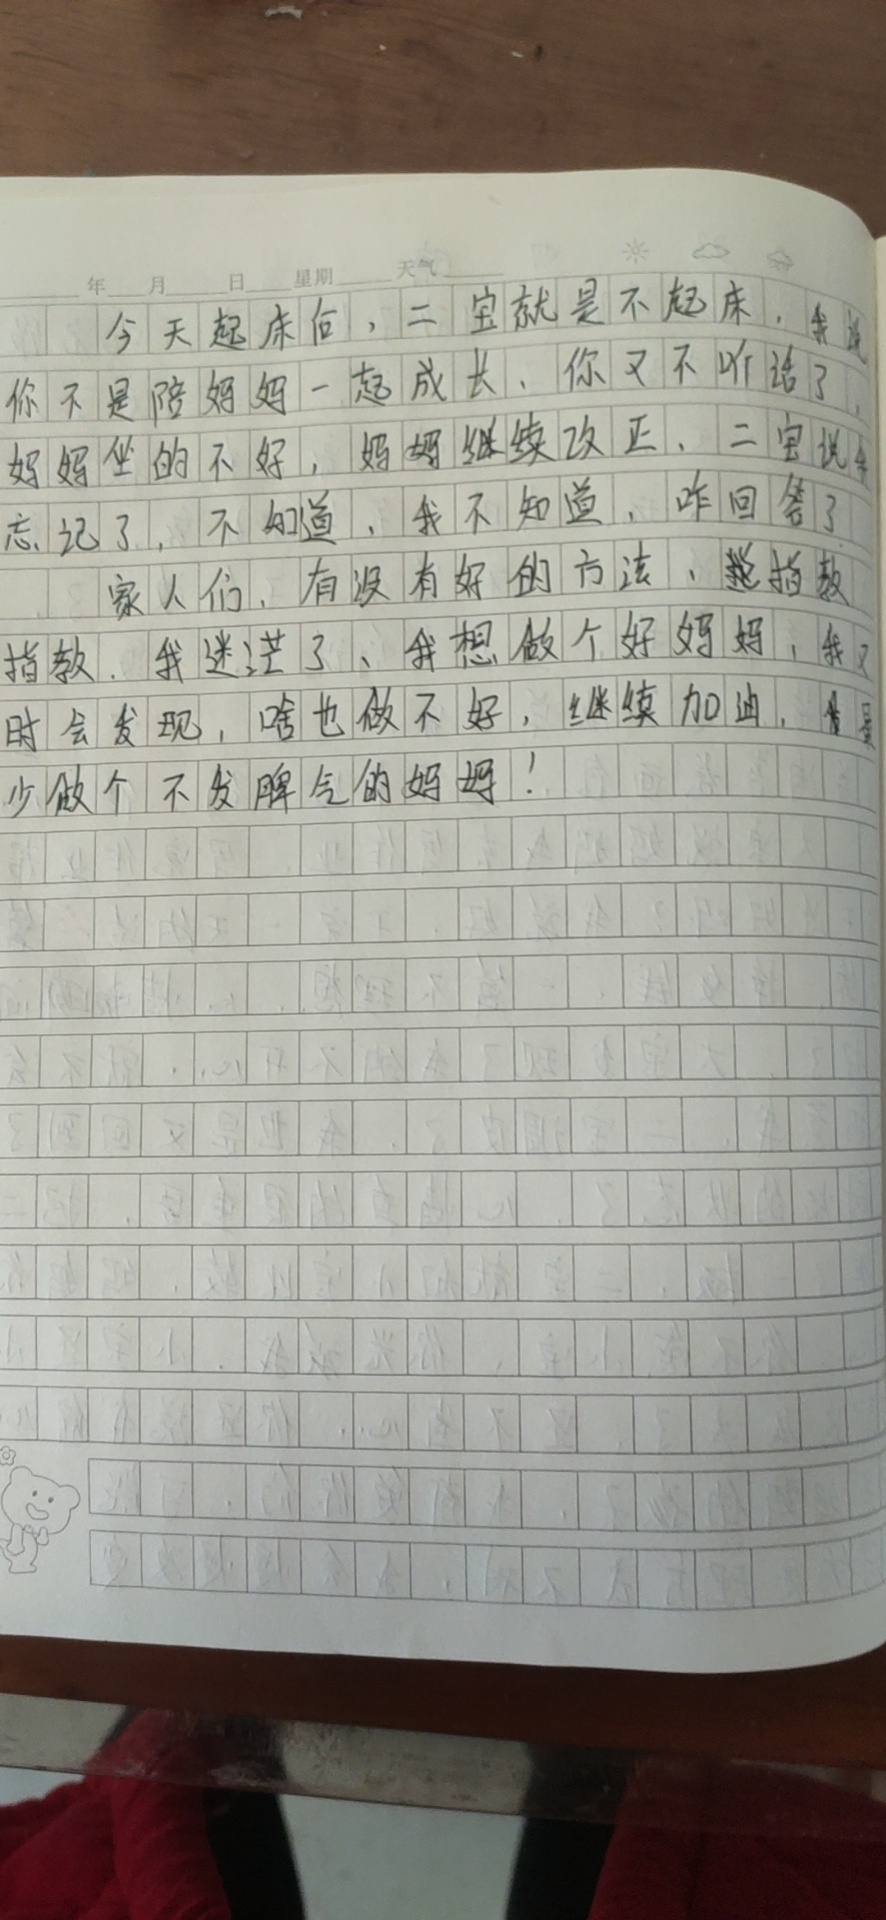 年 月 日 星期 天气
今天起床后，二宝就是不起床，我说
你不是陪妈妈一起成长、你又不听话了，
妈妈坐的不好，妈妈继续改正、二宝说
忘记了，不知道、我不知道，咋回答了
家人们、有没有好的方法、指教
指教．我迷茫了、我想做个好妈妈，我又
时会发现，啥也做不好，继续加油，
少做个不发脾气的妈妈！